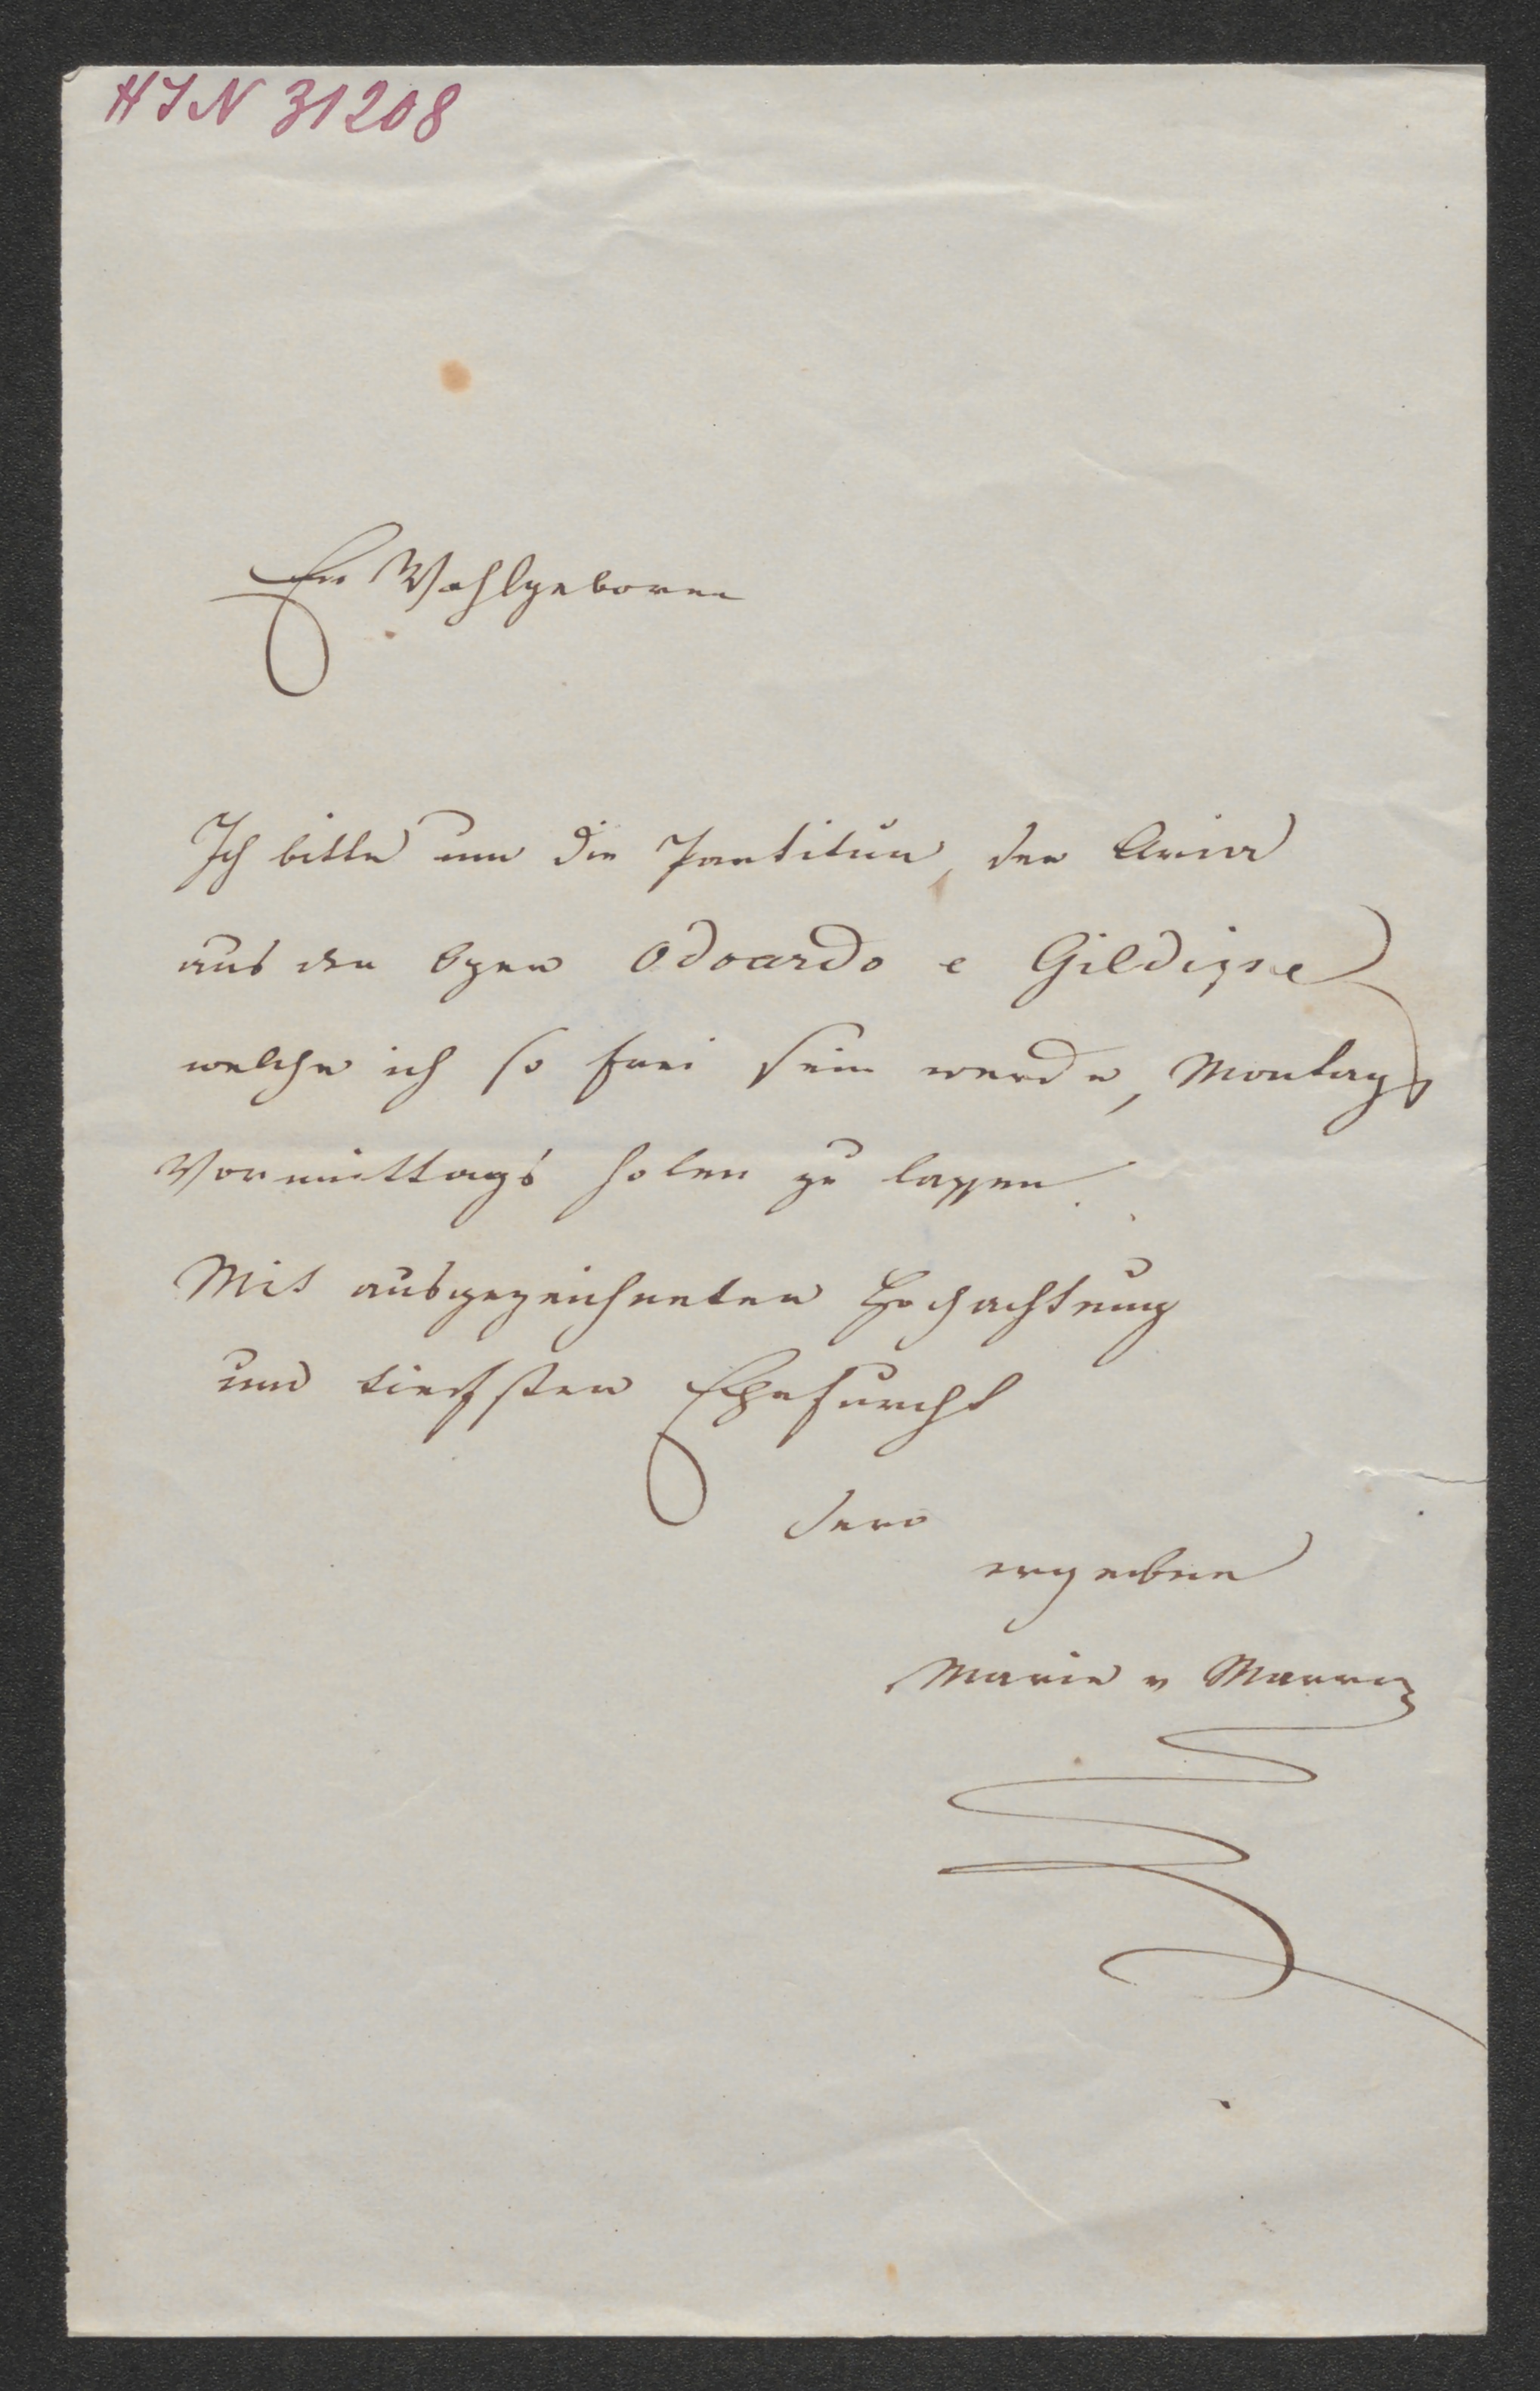 HIN 31208
Eur Wohlgeboren
Ich bitte um die Partitur, der Aria
aus der Oper Odoardo e Gildippe
welche ich so frei sein werde, Montags
Vormittags holen zu lassen.
Mit ausgezeichneter Hochachtung
und tiefster Ehrfurcht
Dero
ergebene
Marie v Marra